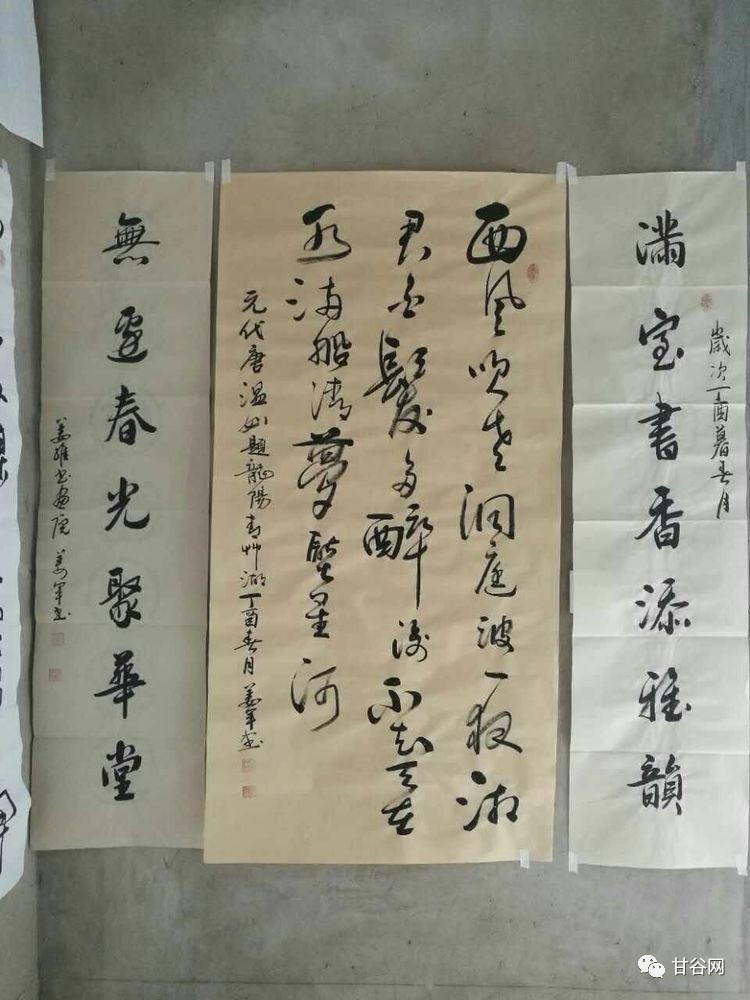 滿室書香添雅韻
歲次丁酉暮春月
西風吹老洞庭波一夜湘
君白髮多醉後不知天在
水满船清夢壓星河
元代唐温如題龍陽青艸湖丁酉春月姜軍书
無邊春光聚華堂
姜維书畫院 姜軍书
甘谷网